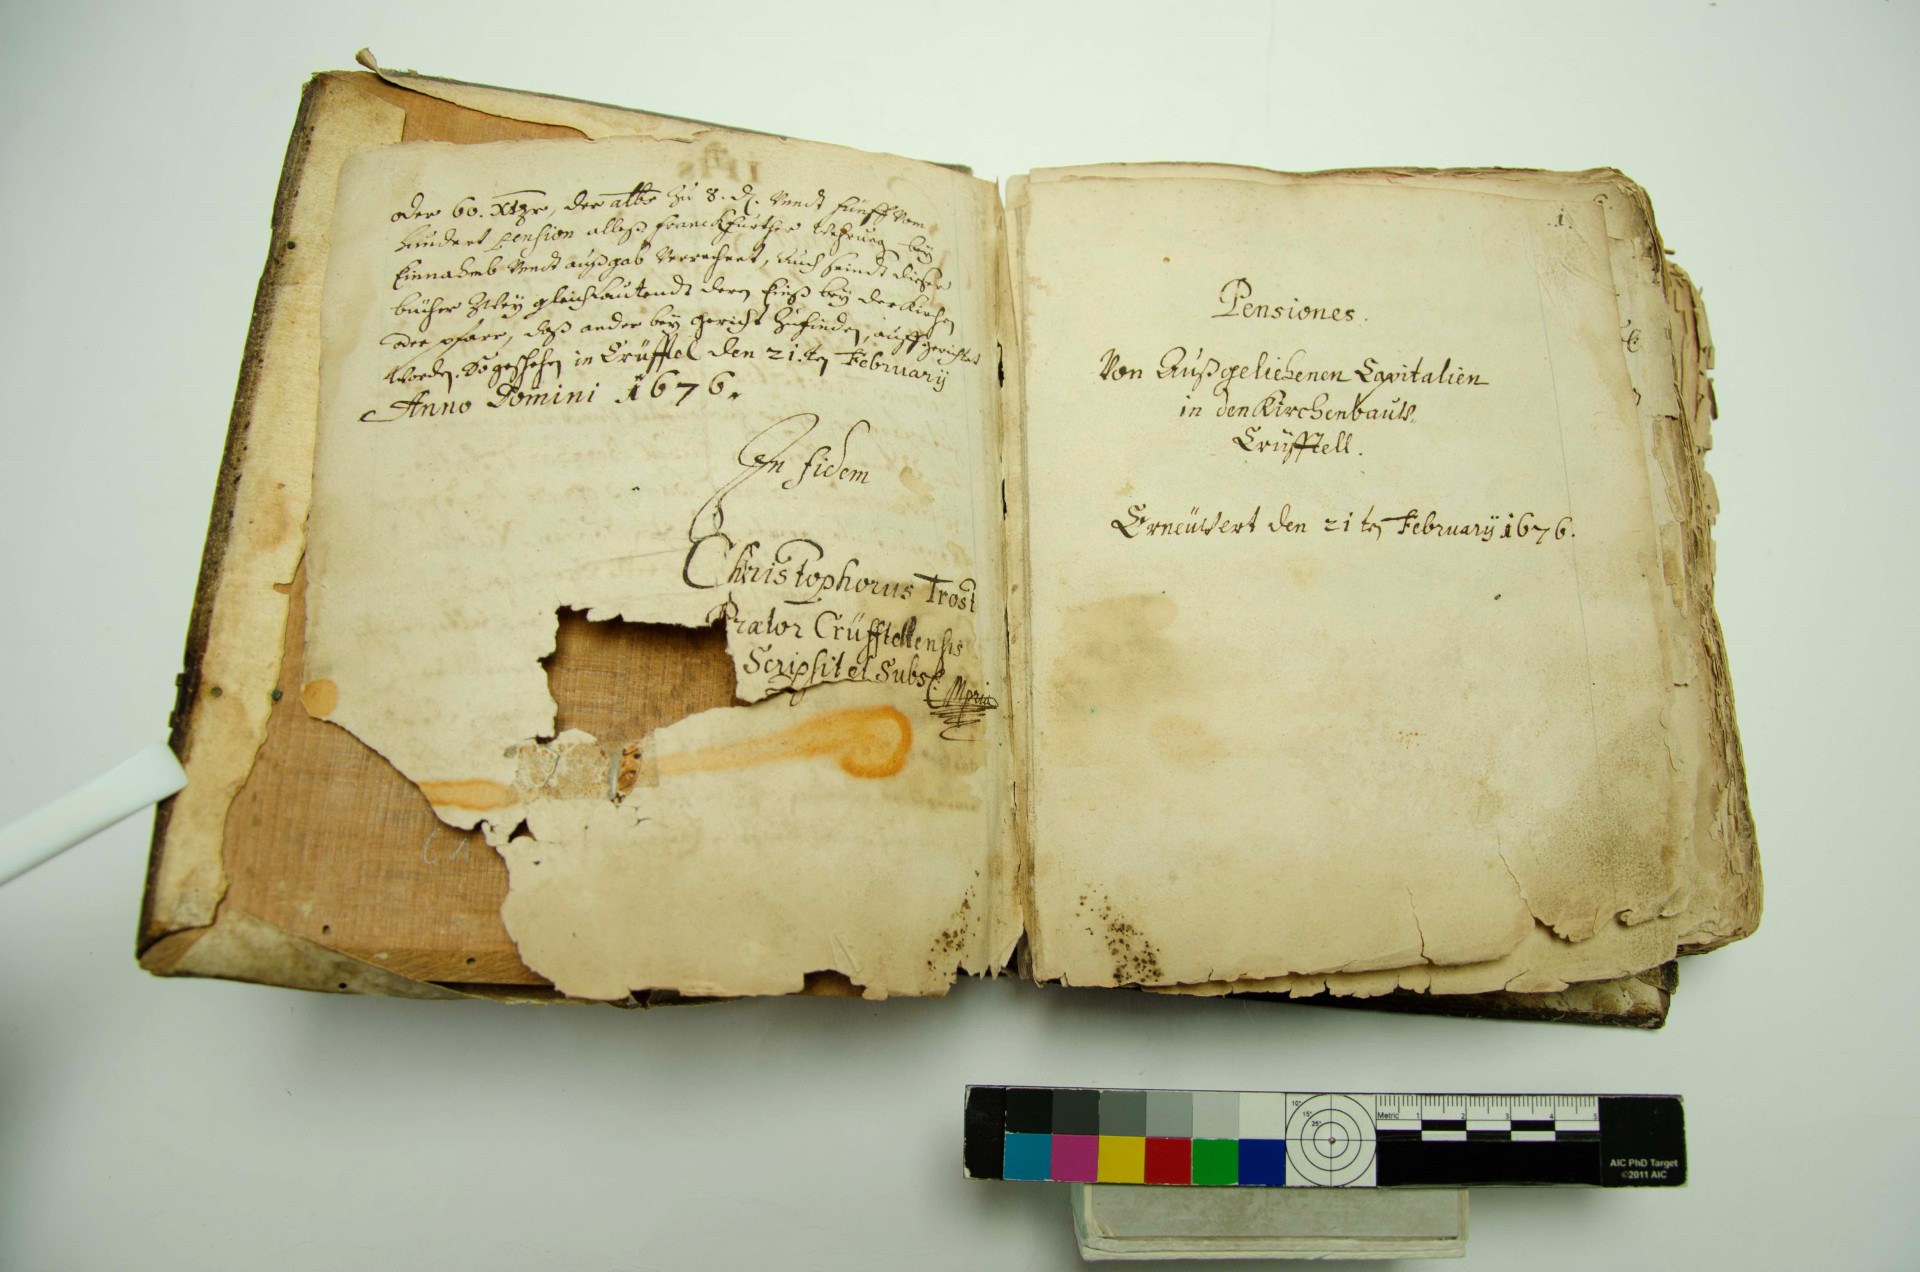 oder 60. Xtzer, der albs zu 8. d. Vndt fünff vom
hundert pension alleß franckfurther Wehrung bey
Einnahmb Vndt außgab Verrechnet, auch seindt dießer
bücher Zwey gleichlautendt deren Einß bey der Kirchen
oder pfarr, daß ander bey gericht Zufinden, auffgerichtet
Worden. So geschehen in Crüfftel den 21.ten February
Anno Domini 1676.
In fidem
Christophorus Trost
Prætor Crüfftellensis
Scripsit et Subsc. Mpria
.1.
Pensiones.
Von Außgeliehenen Capitalien
in den Kirchenbauw
Crüfftell.
Erneüwert den 21ten February 1676.
Metric 1 2 3 4 5
10°
15°
25°
AIC PhD Target
©2011 AIC